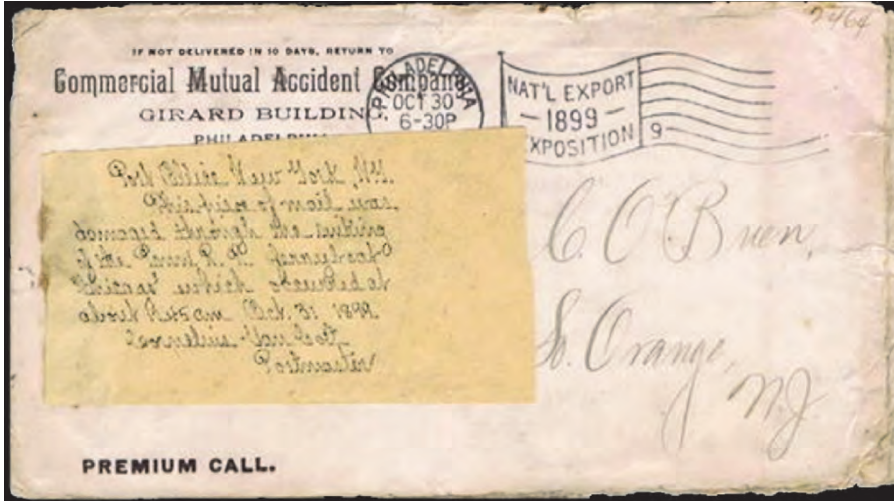 2464
IF NOT DELIVERED IN 10 DAYS, RETURN TO
Commercial Mutual Accident Company
GIRARD BUILDING,
PHILADELPHIA
PHILADELPHIA
OCT 30
6-30P
NAT'L EXPORT
1899
EXPOSITION
9
Post Office New York, N.Y.
This piece of mail was
damaged through the sinking
of the Penn. R. R. ferryboat
"Chicago" which occurred at
about Oct. 31 1899.
Cornelius Van Cott
Postmaster
C. O'Brien,
So. Orange,
N.J.
PREMIUM CALL.